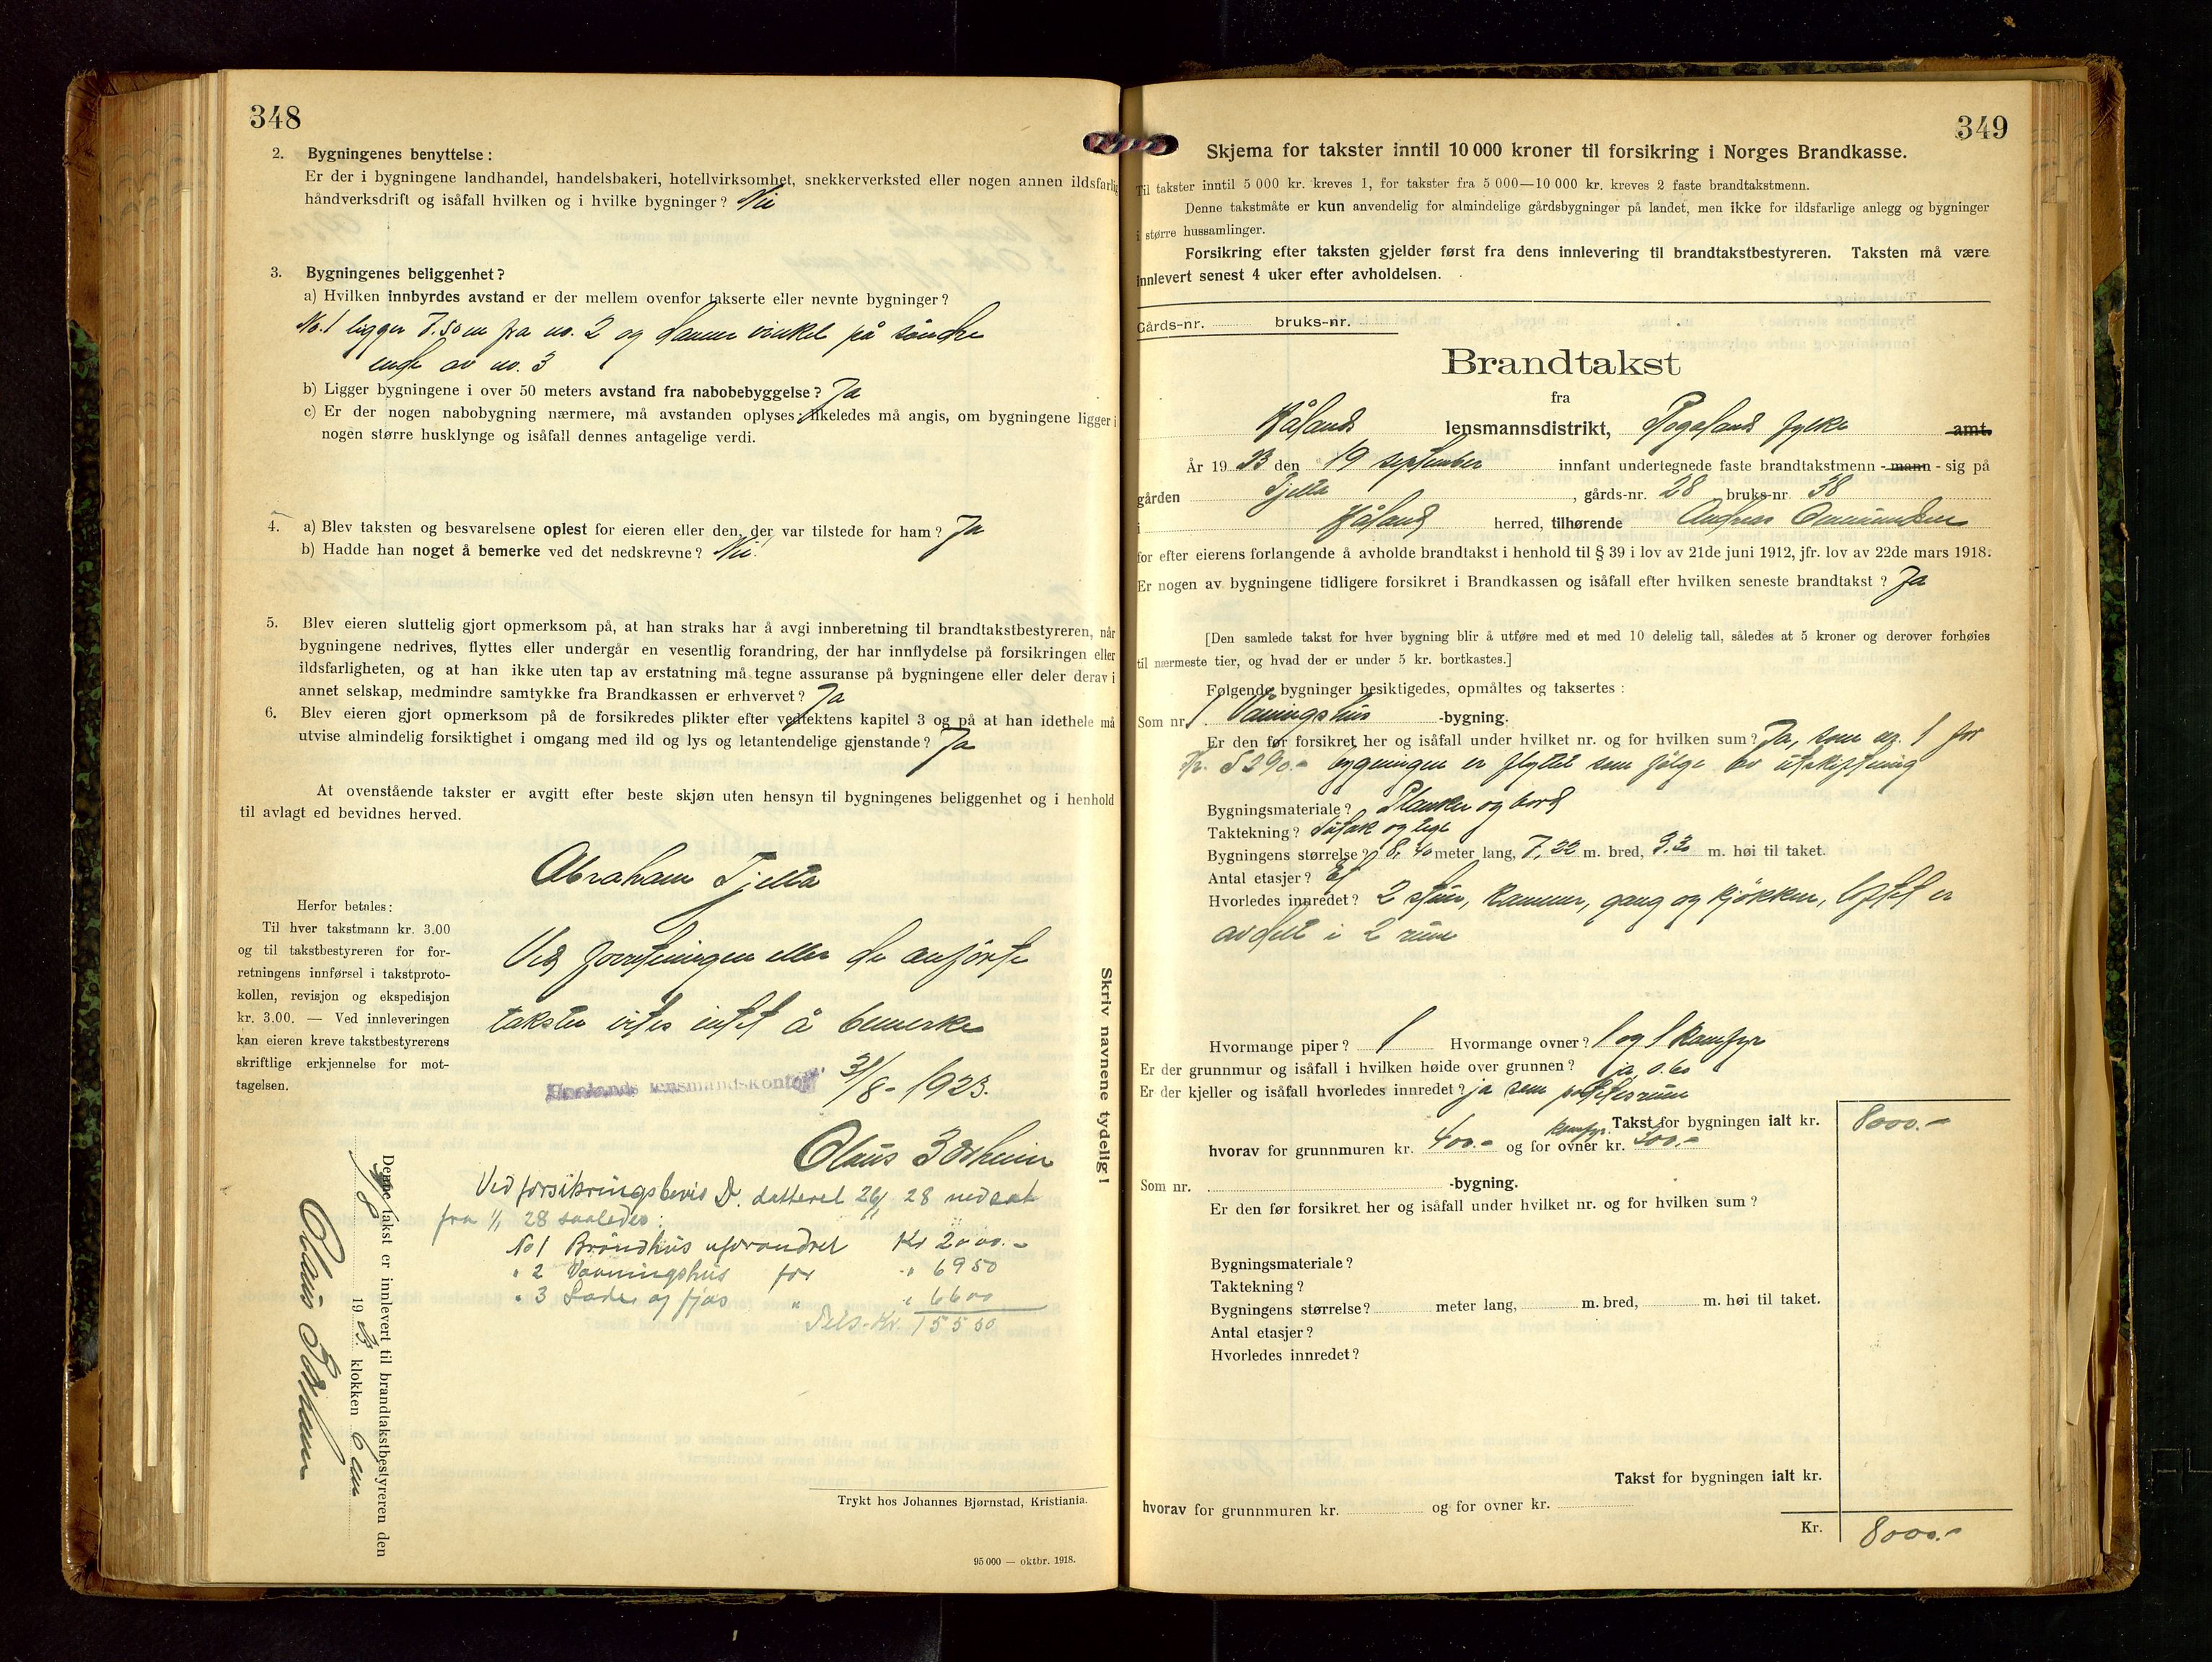 348
2. Bygningenes benyttelse:
Er der i bygningene landhandel, handelsbakeri, hotellvirksomhet, snekkerverksted eller nogen annen ildsfarlig
håndverksdrift og isåfall hvilken og i hvilke bygninger? Nei
3. Bygningenes beliggenhet?
a) Hvilken innbyrdes avstand er der mellem ovenfor takserte eller nevnte bygninger?
No. 1 ligger 7.50 m fra no. 2 og danner vinkel på søndre
ende av no. 3
b) Ligger bygningene i over 50 meters avstand fra nabobebyggelse? Ja
c) Er der nogen nabobygning nærmere, må avstanden oplyses; likeledes må angis, om bygningene ligger i
nogen større husklynge og isåfall dennes antagelige verdi.
4. a) Blev taksten og besvarelsene oplest for eieren eller den, der var tilstede for ham? Ja
b) Hadde han noget å bemerke ved det nedskrevne? Nei
5. Blev eieren sluttelig gjort opmerksom på, at han straks har å avgi innberetning til brandtakstbestyreren, når
bygningene nedrives, flyttes eller undergår en vesentlig forandring, der har innflydelse på forsikringen eller
ildsfarligheten, og at han ikke uten tap av erstatning må tegne assuranse på bygningene eller deler derav i
annet selskap, medmindre samtykke fra Brandkassen er erhvervet? Ja
6. Blev eieren gjort opmerksom på de forsikredes plikter efter vedtektens kapitel 3 og på at han idethele må
utvise almindelig forsiktighet i omgang med ild og lys og letantendelige gjenstande? Ja
At ovenstående takster er avgitt efter beste skjøn uten hensyn til bygningenes beliggenhet og i henhold
til avlagt ed bevidnes herved.
Abraham Tjelta
Herfor betales:
Til hver takstmann kr. 3.00
og til takstbestyreren for for-
retningens innførsel i takstproto-
kollen, revisjon og ekspedisjon
kr. 3.00. — Ved innleveringen
kan eieren kreve takstbestyrerens
skriftlige erkjennelse for mot-
tagelsen.
Ved forretningen eller de anførte
takster vites intet å bemerke
lensmandskontor 31/8 - 1923.
Olaus
Skriv navnene tydelig!
Ved forsikringsbevis D. datteret 26/11 28 nedsat
fra 1/1 28 saaledes:
No 1 Brøndhus uforandret Kr 2000.-
" 2 Vaaningshus for " 6950
" 3 Lade og fjøs " " 6600
Tils. Kr. 15550
Denne takst er innlevert til brandtakstbestyreren den
19 23 klokken 6 em
Olaus
Trykt hos Johannes Bjørnstad, Kristiania.
95 000 — oktbr. 1918.
349
Skjema for takster inntil 10 000 kroner til forsikring i Norges Brandkasse.
Til takster inntil 5 000 kr. kreves 1, for takster fra 5 000—10 000 kr. kreves 2 faste brandtakstmenn.
Denne takstmåte er kun anvendelig for almindelige gårdsbygninger på landet, men ikke for ildsfarlige anlegg og bygninger
i større hussamlinger.
Forsikring efter taksten gjelder først fra dens innlevering til brandtakstbestyreren. Taksten må være
innlevert senest 4 uker efter avholdelsen.
Gårds-nr. bruks-nr.
Brandtakst
fra
Håland lensmannsdistrikt, Rogaland fylke amt.
År 19 23 den 19 september innfant undertegnede faste brandtakstmenn - mann - sig på
gården Tjelta, gårds-nr. 28 bruks-nr. 38
i Håland herred, tilhørende Andreas
for efter eierens forlangende å avholde brandtakst i henhold til § 39 i lov av 21de juni 1912, jfr. lov av 22de mars 1918.
Er nogen av bygningene tidligere forsikret i Brandkassen og isåfall efter hvilken seneste brandtakst? Ja
[Den samlede takst for hver bygning blir å utføre med et med 10 delelig tall, således at 5 kroner og derover forhøies
til nærmeste tier, og hvad der er under 5 kr. bortkastes.]
Følgende bygninger besiktigedes, opmåltes og taksertes:
Som nr. 1 Våningshus -bygning.
Er den før forsikret her og isåfall under hvilket nr. og for hvilken sum? Ja, som nr. 1 for
Kr. 5290.- bygningen er flyttet som følge av utskiftning
Bygningsmateriale? Planker og bord
Taktekning? Sutak og tegl
Bygningens størrelse? 8,40 meter lang, 7,22 m. bred, 3.30 m. høi til taket.
Antal etasjer? Et
Hvorledes innredet? 2 stuer, kammer, gang og kjøkken, loftet er
avdelt i 2 rum
Hvormange piper? 1 Hvormange ovner? 1 og 1 komfyr
Er der grunnmur og isåfall i hvilken høide over grunnen? ja, 0.60
Er der kjeller og isåfall hvorledes innredet? ja som potetesrum
Takst for bygningen ialt kr. 8000.-
hvorav for grunnmuren kr. 400.- og for ovner kr. komfyr. 300.-
Som nr. -bygning.
Er den før forsikret her og isåfall under hvilket nr. og for hvilken sum?
Bygningsmateriale?
Taktekning?
Bygningens størrelse? meter lang, m. bred, m. høi til taket.
Antal etasjer?
Hvorledes innredet?
Takst for bygningen ialt kr.
hvorav for grunnmuren kr. og for ovner kr.
Kr. 8000.-